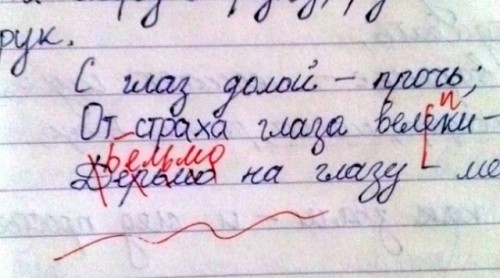 рук.
С глаз долой - прочь;
п
От страха глаза велеки -
Бельмо
Дерьмо на глазу - ме